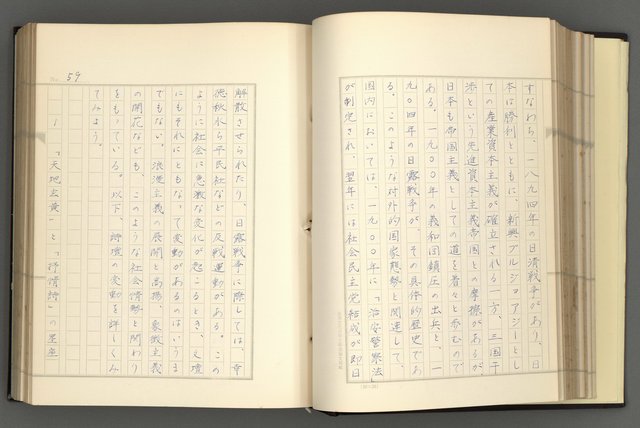 すなわち、一八九四年の日清戦争があり、日
本は勝利とともに、新興ブルジョアジーとし
ての産業資本主義が確立される一方、三国干
渉という先進資本主義帝国との摩擦があるが、
日本も帝国主義としての道を着々と歩むので
ある。一九〇〇年の義和団鎮圧の出兵と、一
九〇四年の日露戦争が、その具体的歴史であ
る。このような対外的国家態勢と関連して、
国内においては、一九〇〇年に「治安警察法」
が制定され、翌年には社会民主党結成が即日
59
解散させられたり、日露戦争に際しては、幸
徳秋水ら平民社などの反戦運動がある。この
ように社会に急激な変化が起こるとき、文壇
にもそれにともなって変動があるのはいうま
でもない。浪漫主義の展開と高揚、象徴主義
の開花なども、このような社会情勢と関わり
をもっている。以下、詩壇の変動を詳しくみ
てみよう。
1 「天地玄黄」と「抒情詩」の